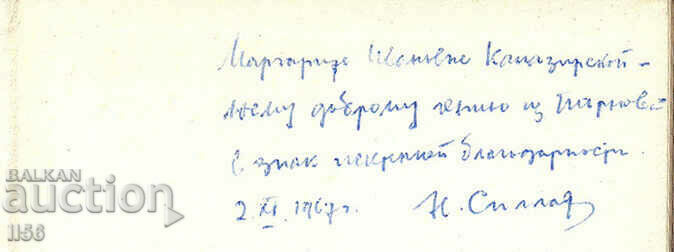 Маргарите Ивановне
моему доброму гению из Тырнова
в знак искренней благодарности.
2.XI.1967г. Н. Силлат
BALKAN
auction
1156